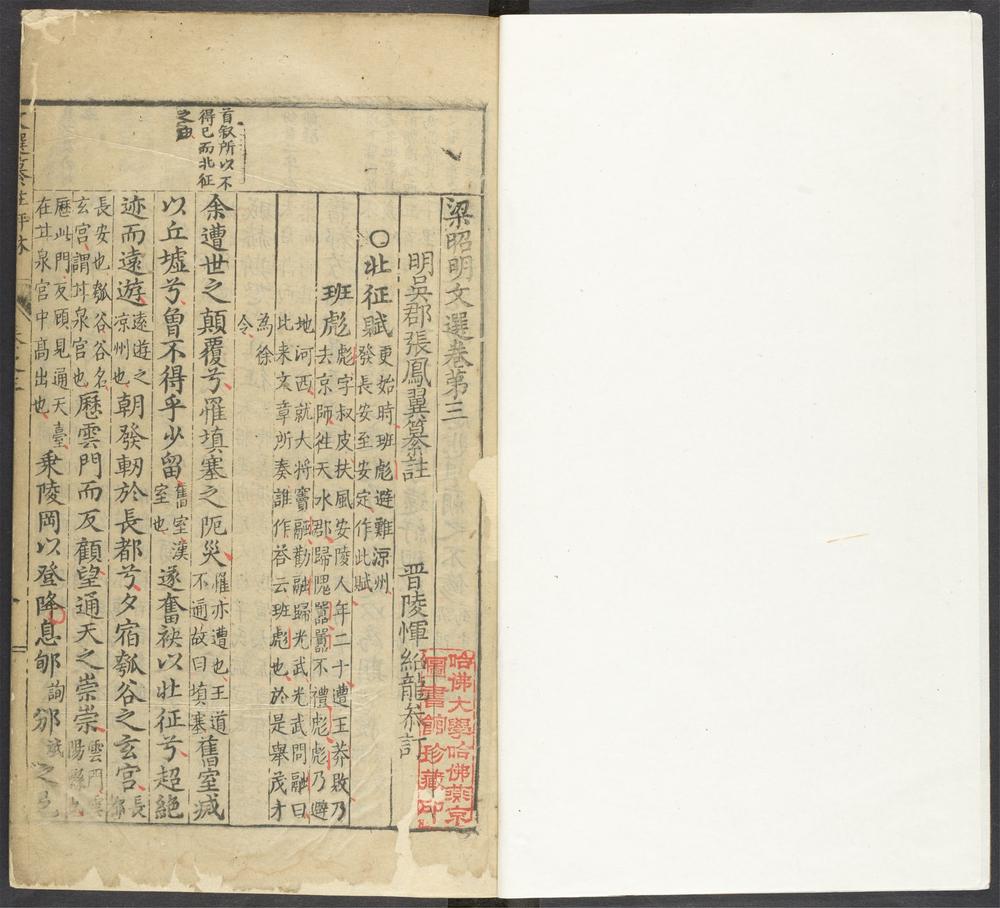 梁昭明文選卷第三
明吳郡張鳳翼纂註 晋陵惲紹龍叅訂
〇北征賦更始時班彪避難涼州發長安至安定作此賦
班彪彪字叔皮扶風安陵人年二十遭王莽敗乃去京師往天水郡歸隗囂囂不禮彪彪乃避
地河西就大將竇融勸融歸光武光武問融曰此來文章所奏誰作荅云班彪也於是舉茂才
為徐令
首叙所以不
得已而北征
之由
余遭世之顛覆兮罹填塞之阨災罹亦遭也王道不通故曰填塞舊室滅
以丘墟兮曾不得乎少留舊室漢室也遂奮袂以北征兮超絕
迹而遠遊遠遊之涼州也朝發軔於長都兮夕宿瓠谷之玄宮長都
長安也瓠谷谷名玄宮謂甘泉宮也歷雲門而反顧望通天之崇崇雲門雲陽縣也
歷此門反顧見通天臺在甘泉宮中高出也乘陵岡以登降息郇詢邠斌之邑
文選纂註評林
卷之三
哈佛大學哈佛燕京
圖書館珍藏印